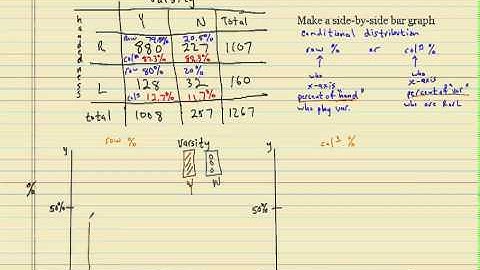 varsity
handedness
Y N Total
R
row 79.5% 20.5%
880 227 1107
col% 87.3% 88.3%
row 80% 20%
L 128 32 160
col% 12.7% 11.7%
total 1008 257 1267
Make a side-by-side bar graph
conditional distribution
row % or col %
who who
x-axis x-axis
percent of "hand" percent of "var"
who play var. who are R or L
row % varsity col %
y y
Y N
%
50% 50%